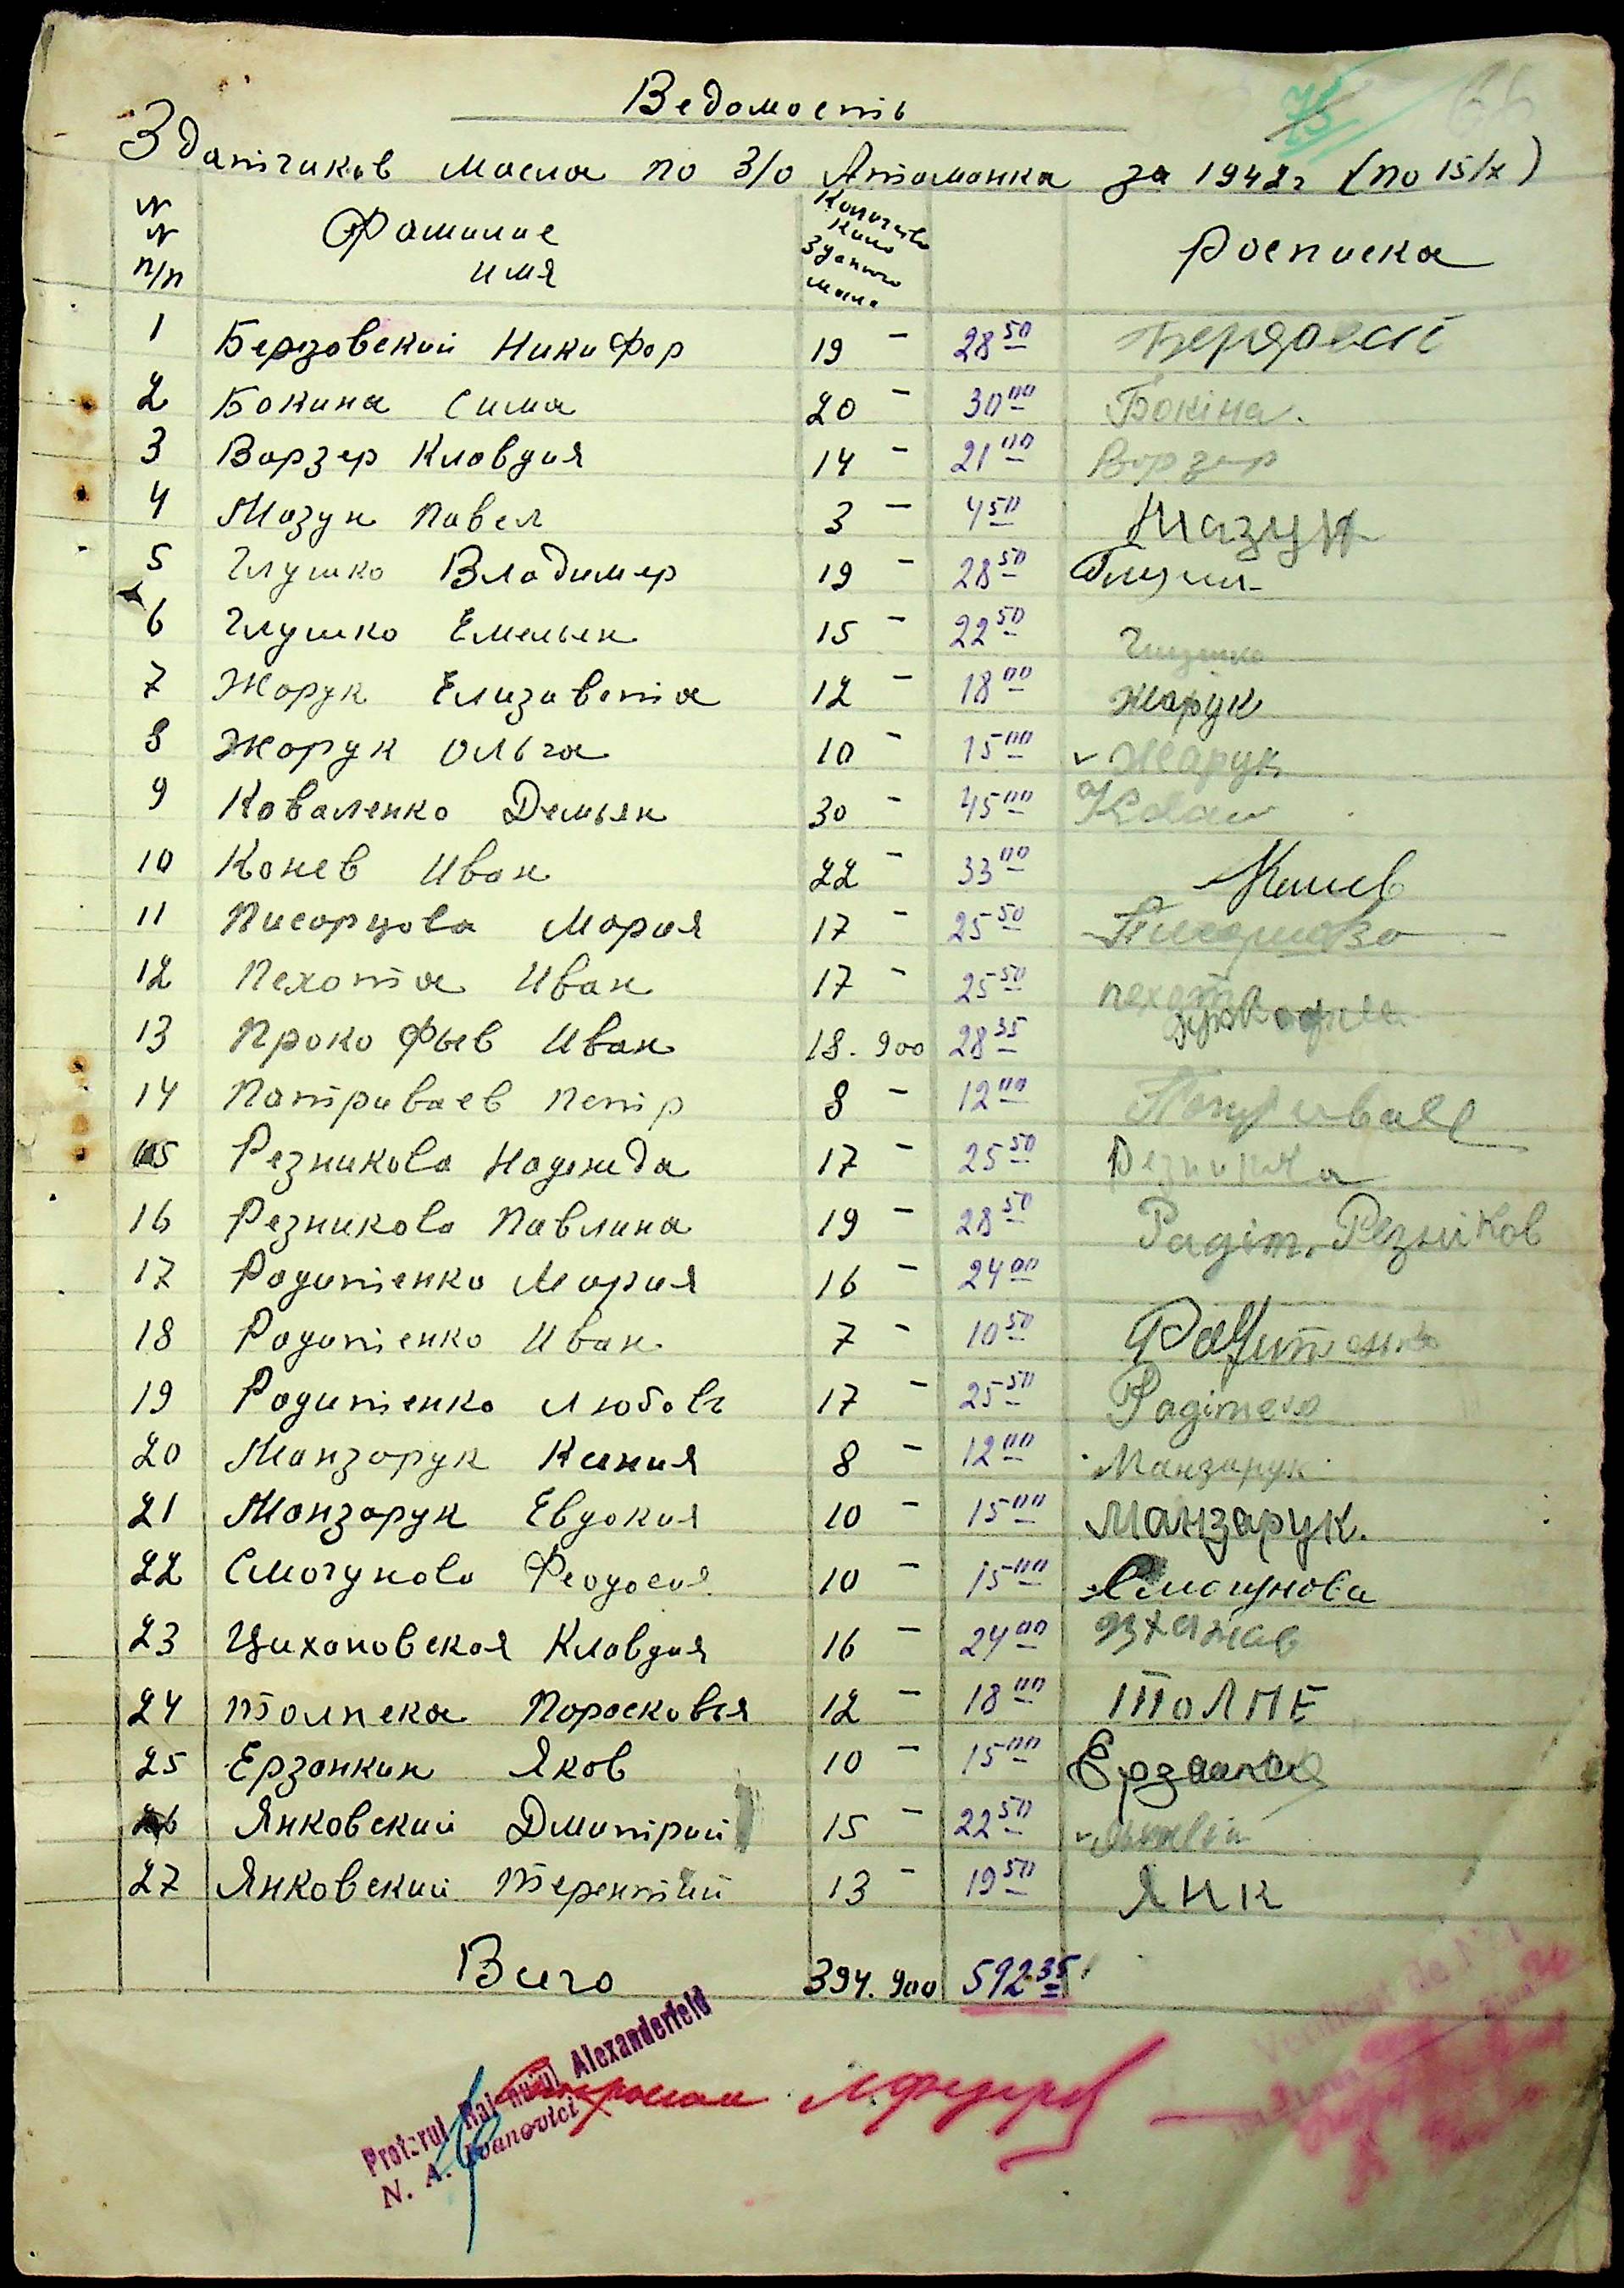 75
Ведомость
Здатчиков масла по З/О Атаманка за 1942г (по 15/X)
N N п/п Фамилие имя Количество кило зданого масла Росписка
1 Берзовский Никифор 19 - 28 50
2 Бокина Сима 20 - 30 00 Бокіна.
3 Варзер Клавдия 14 - 21 00 Варзер
4 Мазун Павел 3 - 4 50 Мазун
5 Глушко Владимер 19 - 28 50
6 Глушко Емельен 15 - 22 50 Глушко
7 Жарук Елизавета 12 - 18 00 Жарук
8 Жарук Ольга 10 - 15 00 Жарук
9 Коваленко Демьян 30 - 45 00
10 Конев Иван 22 - 33 00 Конев
11 Писарцова Мария 17 - 25 50
12 Пехота Иван 17 - 25 50 пехота
13 Прокофьев Иван 18.900 28 35
14 Патриваев Петр 8 - 12 00
15 Резникова Надежда 17 - 25 50
16 Резникова Павлина 19 - 28 50 Радіт. Резніков
17 Радитенко Мария 16 - 24 00
18 Радитенко Иван 7 - 10 50 Радитенко
19 Радитенко Любовь 17 - 25 50
20 Манзарук Кения 8 - 12 00 Манзарук
21 Манзарук Евдокия 10 - 15 00 Манзарук.
22 Смагунова Феодосия 10 - 15 00 Смагунова
23 Цихановская Клавдия 16 - 24 00
24 Толпека Парасковья 12 - 18 00 ТОЛПЕ
25 Ерзанкин Яков 10 - 15 00
26 Янковский Дмитрий 15 - 22 50
27 Янковский Терентий 13 - 19 50 ЯНК
Всего 394.900 592.35
Pretorul Raionului Alexanderfeld
N. A. Ivanovici